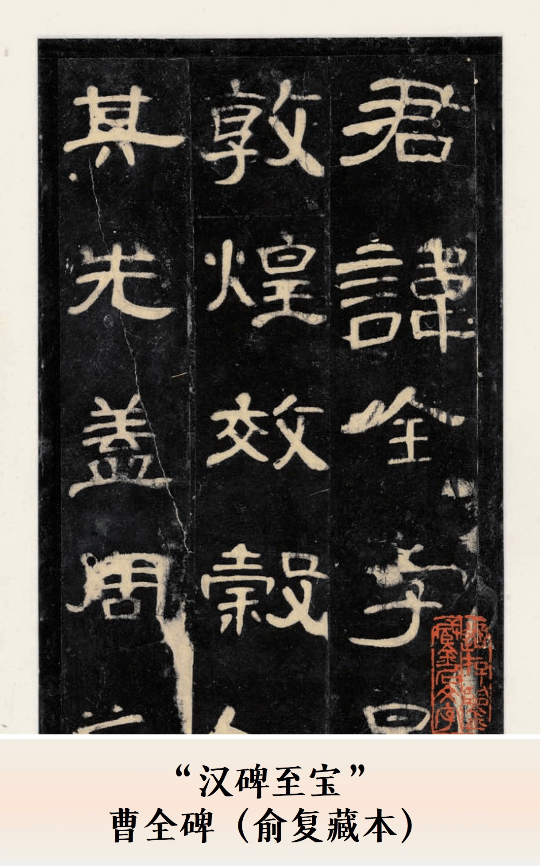 君諱全字
敦煌效穀
其先盖周
“汉碑至宝”
曹全碑（俞复藏本）